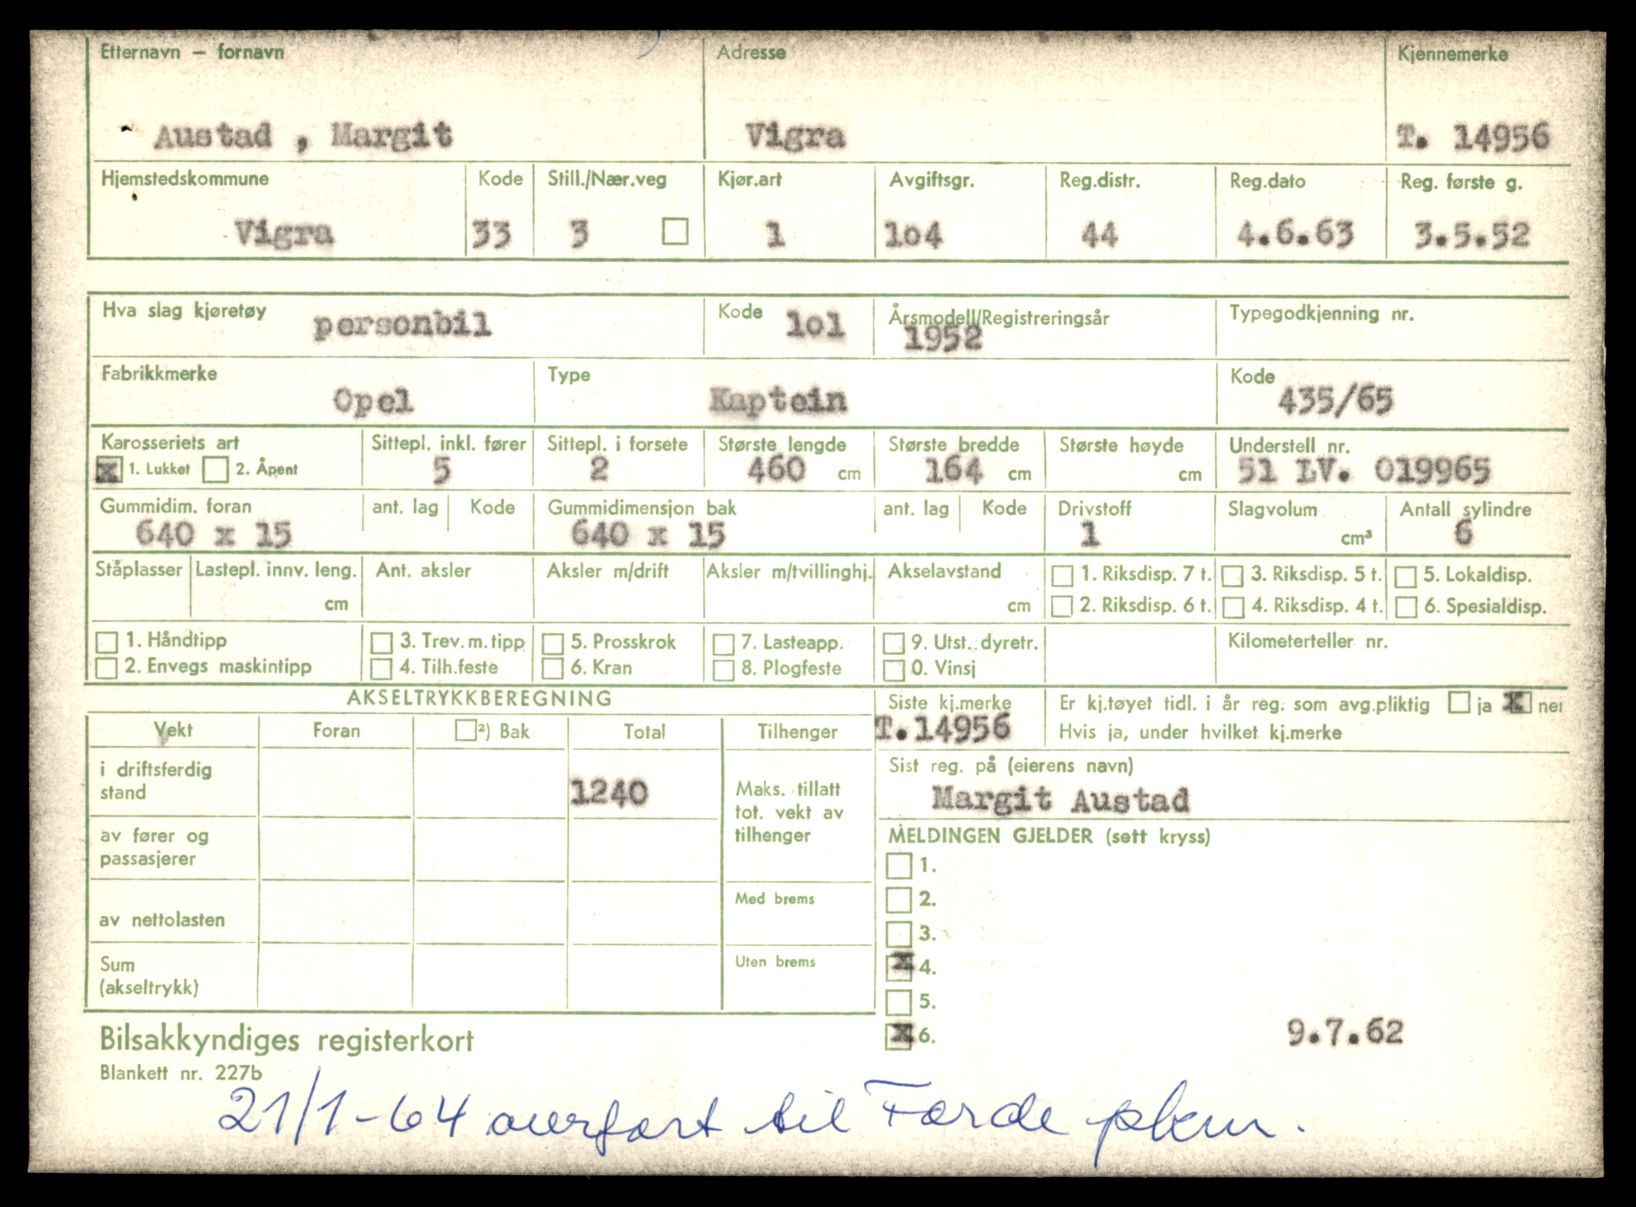 Etternavn – fornavn Adresse Kjennemerke
Austad , Margit Vigra T. 14956
Hjemstedskommune Kode Still./Nær.veg Kjør.art Avgiftsgr. Reg.distr. Reg.dato Reg. første g.
Vigra 33 3 1 1o4 44 4.6.63 3.5.52
Hva slag kjøretøy personbil Kode 1o1 Årsmodell/Registreringsår 1952 Typegodkjenning nr.
Fabrikkmerke Type Kode
Opel Kaptein 435/65
Karosseriets art Sittepl. inkl. fører Sittepl. i forsete Største lengde Største bredde Største høyde Understell nr.
x 1. Lukket 2. Åpent 5 2 460 cm 164 cm cm 51 LV. 019965
Gummidim. foran ant. lag Kode Gummidimensjon bak ant. lag Kode Drivstoff Slagvolum Antall sylindre
640 x 15 640 x 15 1 cm³ 6
Ståplasser Lastepl. innv. leng. Ant. aksler Aksler m/drift Aksler m/tvillinghj. Akselavstand 1. Riksdisp. 7 t. 3. Riksdisp. 5 t. 5. Lokaldisp.
cm cm 2. Riksdisp. 6 t. 4. Riksdisp. 4 t. 6. Spesialdisp.
1. Håndtipp 3. Trev. m. tipp 5. Prosskrok 7. Lasteapp. 9. Utst. dyretr. Kilometerteller nr.
2. Envegs maskintipp 4. Tilh.feste 6. Kran 8. Plogfeste 0. Vinsj
AKSELTRYKKBEREGNING Siste kj.merke Er kj.tøyet tidl. i år reg. som avg.pliktig ja x nei
Vekt Foran ²) Bak Total Tilhenger T.14956 Hvis ja, under hvilket kj.merke
i driftsferdig stand 1240 Sist reg. på (eierens navn)
Maks. tillatt tot. vekt av tilhenger Margit Austad
av fører og passasjerer MELDINGEN GJELDER (sett kryss)
1.
Med brems 2.
av nettolasten 3.
Sum (akseltrykk) Uten brems x 4.
5.
Bilsakkyndiges registerkort x 6. 9.7.62
Blankett nr. 227b
21/1-64 overført til Førde pkm.